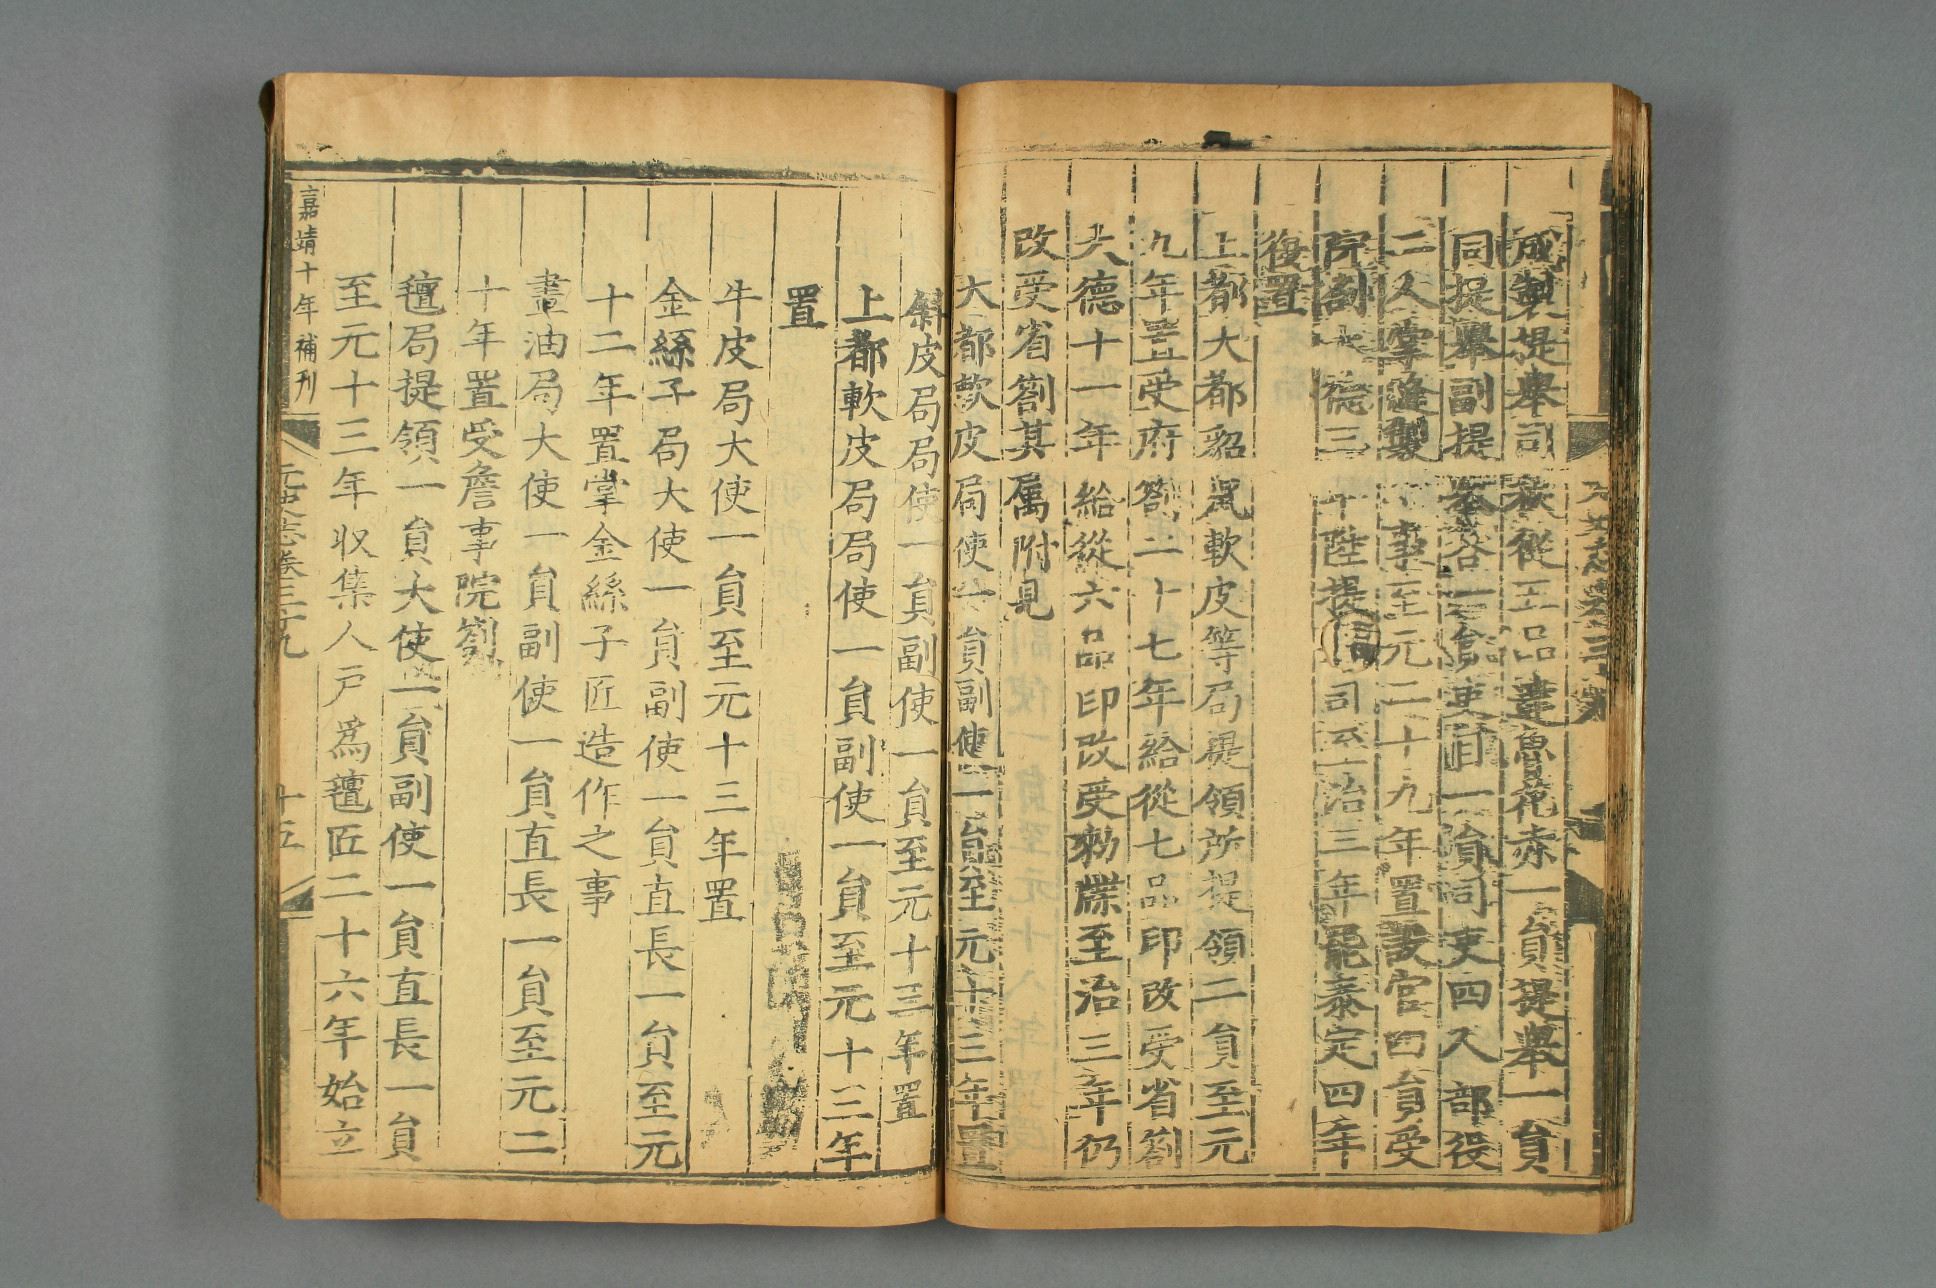 成製提舉司秩從五品達魯花赤一員提舉一員
同提舉副提舉各一員吏目一員司吏四人部役
二人掌縫製之事至元二十九年置設官四員受
院劄大德三年陞提司至治三年罷泰定四年
復置
上都大都貂鼠軟皮等局提領所提領二員至元
九年置受府劄二十七年給從七品印改受省劄
大德十一年給從六品印改受勑牒至治三年仍
改受省劄其属附見
大都軟皮局使一員副使一員至元十三年置
斜皮局局使一員副使一員至元十三年置
上都軟皮局局使一員副使一員至元十三年
置
牛皮局大使一員至元十三年置
金絲子局大使一員副使一員直長一員至元
十二年置掌金絲子匠造作之事
畫油局大使一員副使一員直長一員至元二
十年置受詹事院劄
氊局提領一員大使一員副使一員直長一員
至元十三年收集人戸爲氊匠二十六年始立
嘉靖十年補刊
元史志卷三十九
十五